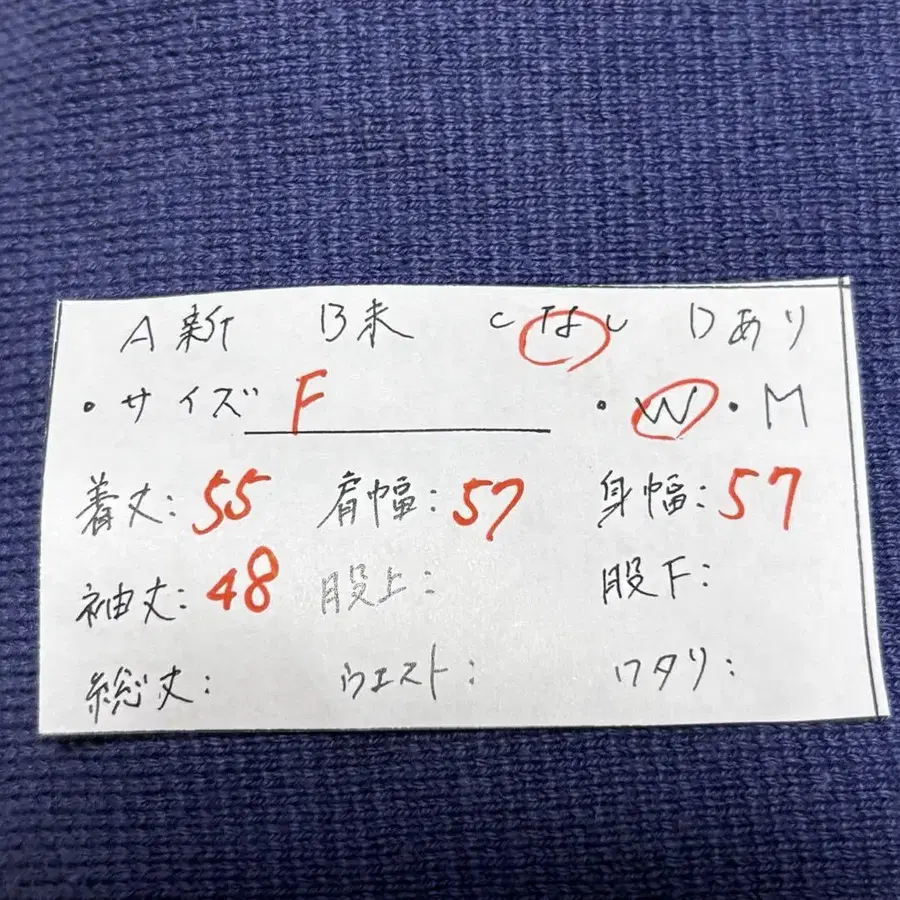 A新 B未 Cなし Dあり
・サイズ F ・W・M
着丈: 55 肩幅: 57 身幅: 57
袖丈: 48 股上: 股下:
総丈: ウエスト: ワタリ: